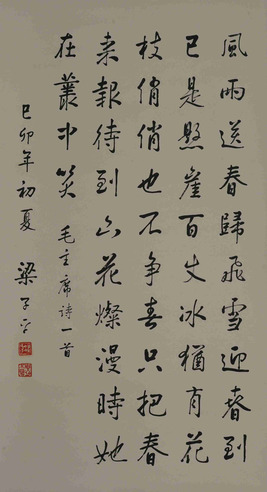 風雨送春歸飛雪迎春到
已是懸崖百丈冰猶有花
枝俏俏也不争春只把春
来報待到山花燦漫時她
在叢中笑
毛主席詩一首
己卯年初夏
梁子